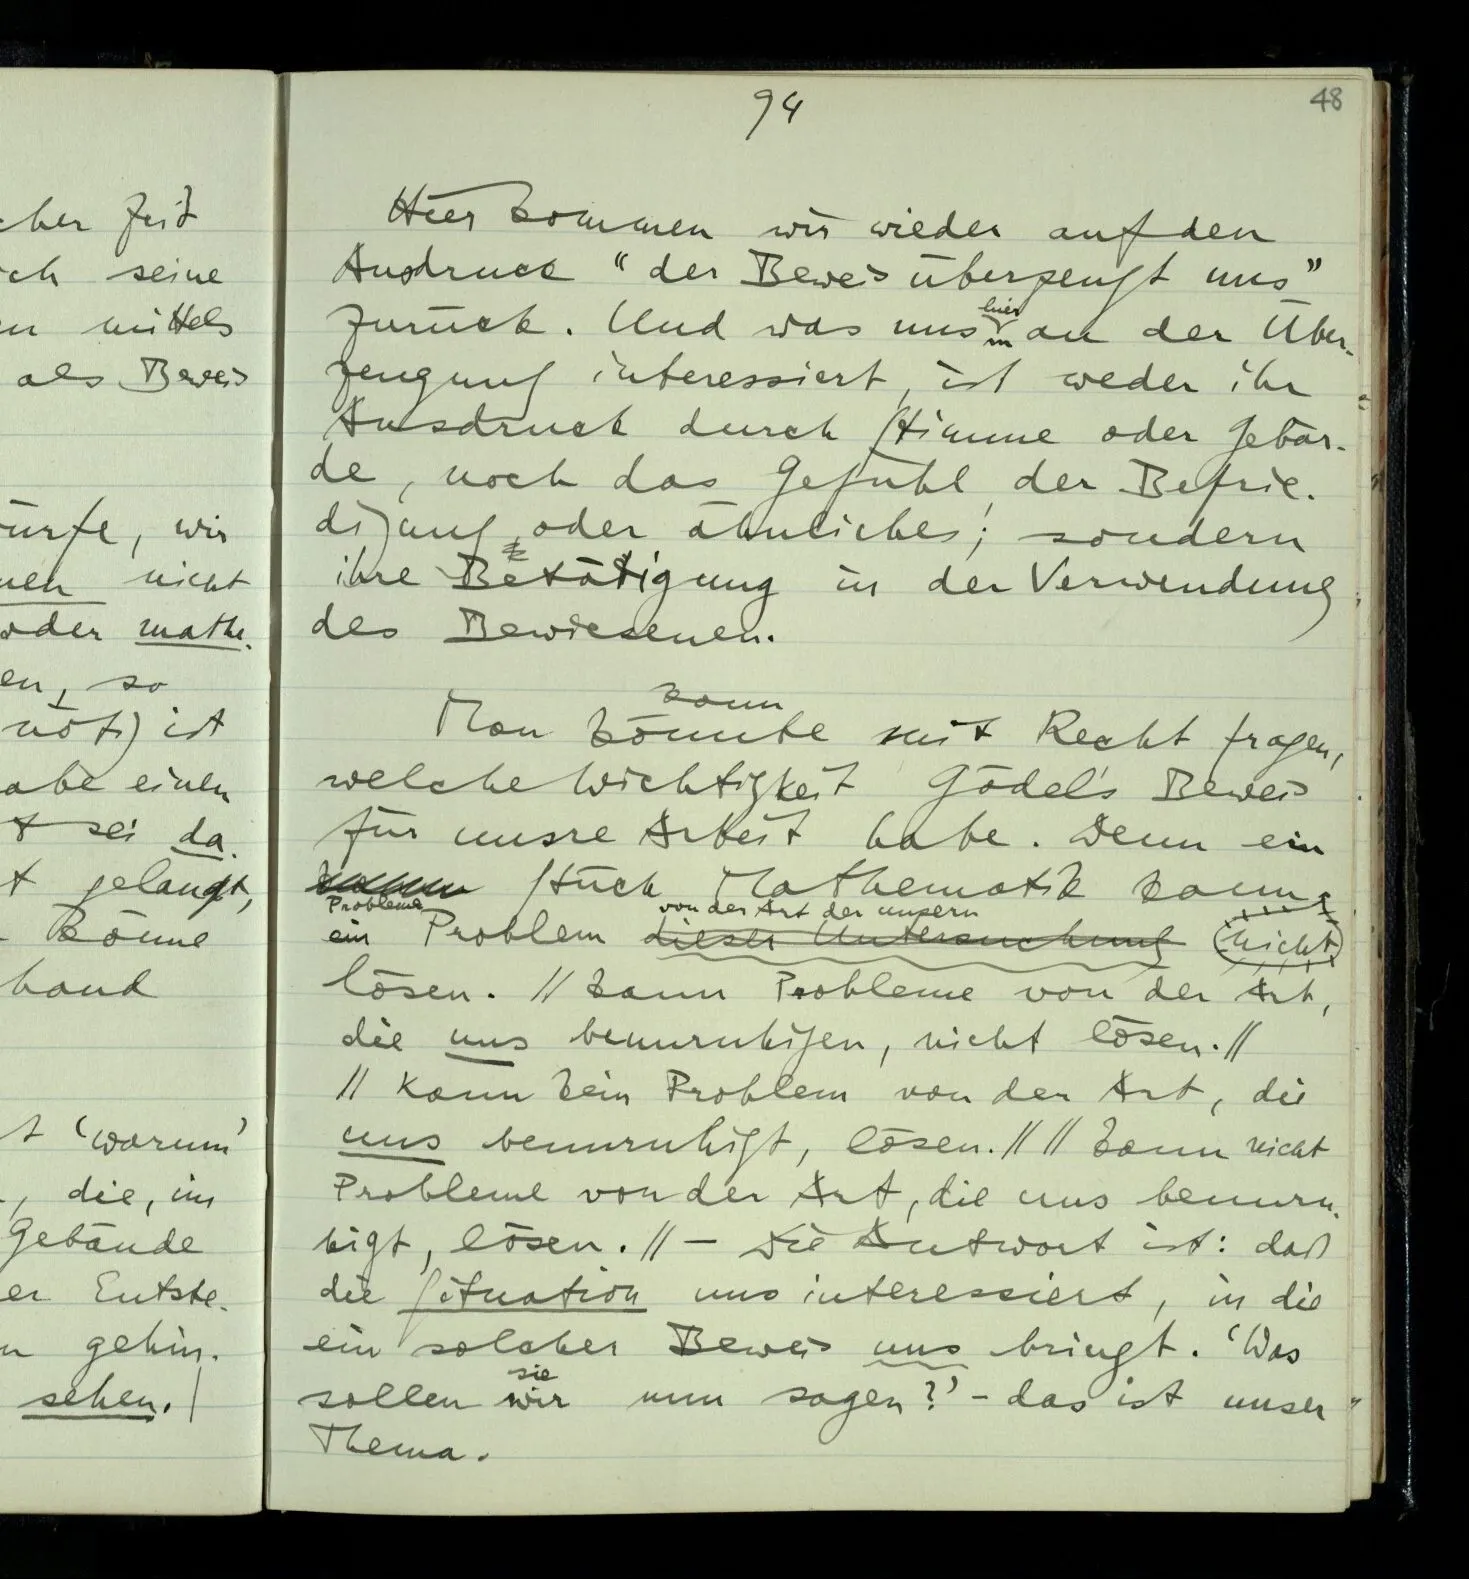 cher Zeit
ch seine
en mittels
als Beweis
ürfe, wir
nen nicht
oder mathe-
en, so
nöti) ist
abe einen
t sei da-
t gelangt,
könne
hand
t ‘warum’
, die, im
Gebäude
er Entste-
n gehin-
sehen. |
94
48
Hier kommen wir wieder auf den
Ausdruck “der Beweis überzeugt uns”
hier
zurück. Und was uns an der Über-
zeugung interessiert, ist weder ihr
Ausdruck durch Stimme oder Gebär-
de, noch das Gefühl der Befrie-
digung, oder ähnliches; sondern
ihre Betätigung in der Verwendung
des Bewiesenen.
kann
Man könnte mit Recht fragen,
welche Wichtigkeit Gödel's Beweis
für unsre Arbeit habe. Denn ein
Stück Mathematik kann
Probleme von der Art der unsern
ein Problem dieser Untersuchung nicht
lösen. // kann Probleme von der Art,
die uns beunruhigen, nicht lösen. //
// kann kein Problem von der Art, die
uns beunruhigt, lösen. // // kann nicht
Probleme von der Art, die uns beunru-
higt, lösen. // – Die Antwort ist: daß
die Situation uns interessiert, in die
ein solcher Beweis uns bringt. ‘Was
sie
sollen wir nun sagen?’ – das ist unser
Thema.